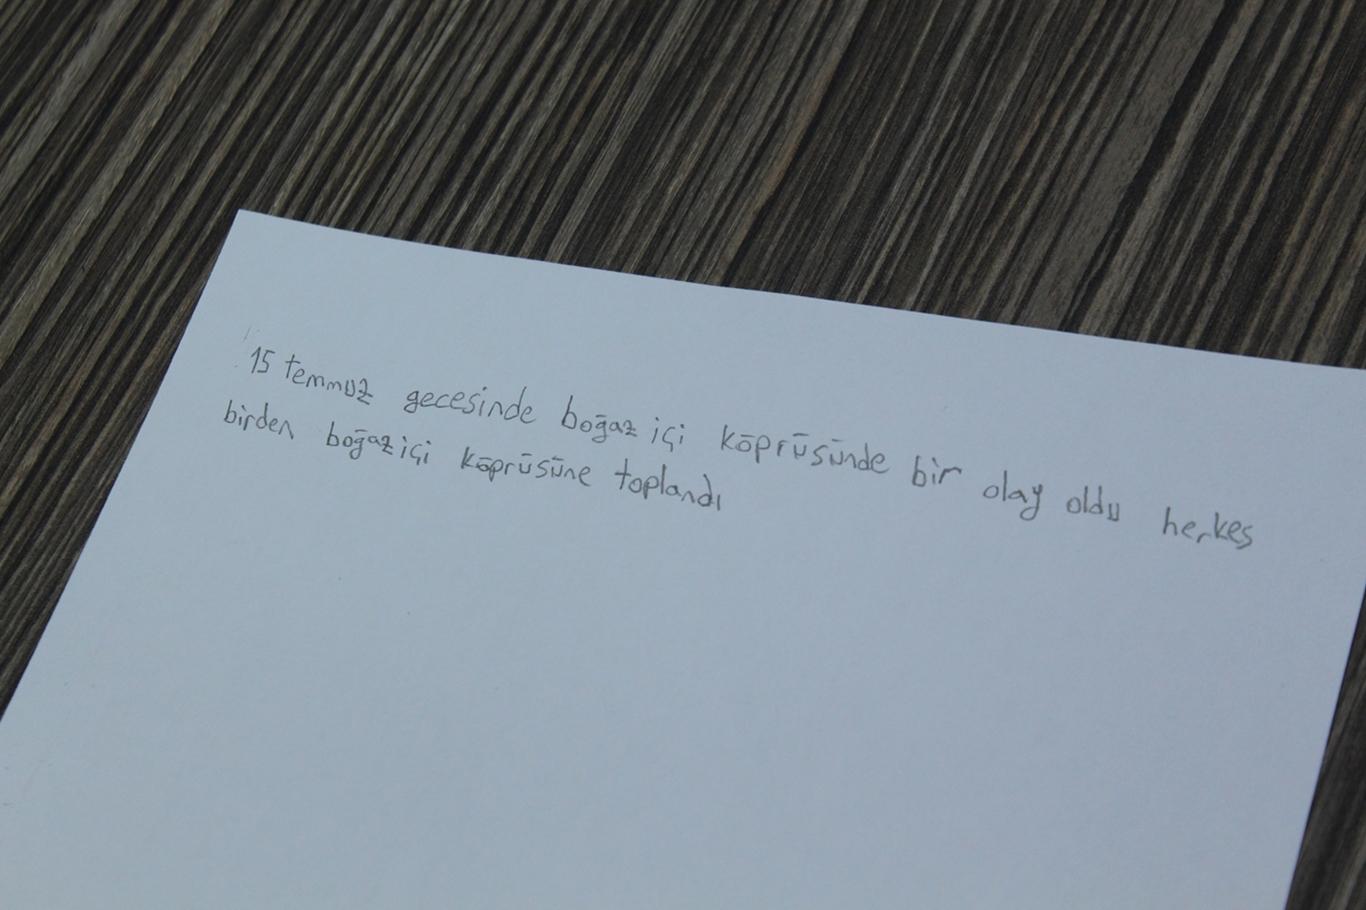 15 temmuz gecesinde boğaz içi köprüsünde bir olay oldu herkes
birden boğaz içi köprüsüne toplandı